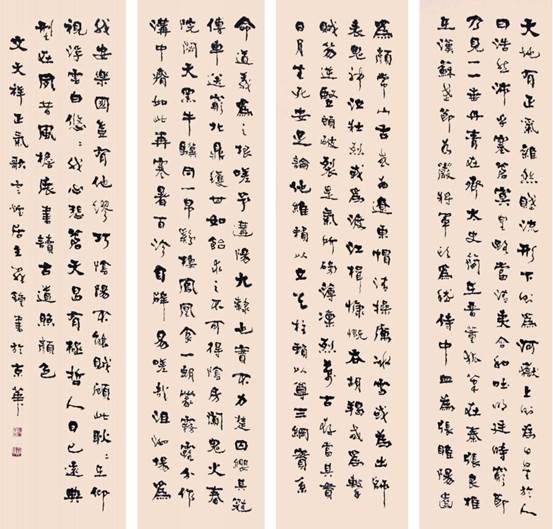 天地有正氣雜然賦流形下則為河嶽上則為日星於人
曰浩然沛乎塞蒼冥皇路當清夷含和吐明廷時窮節
乃見一一垂丹青在齊太史簡在晉董狐筆在秦張良椎
在漢蘇武節為嚴將軍頭為嵇侍中血為張睢陽齒
為顏常山舌或為遼東帽清操厲冰雪或為出師
表鬼神泣壯烈或為渡江楫慷慨吞胡羯或為擊
賊笏逆豎頭破裂是氣所磅礴凜烈萬古存當其貫
日月生死安足論地維賴以立天柱賴以尊三綱實系
命道義為之根嗟予遘陽九隸也實不力楚囚纓其冠
傳車送窮北鼎鑊甘如飴求之不可得陰房闃鬼火春
院閟天黑牛驥同一皂雞棲鳳凰食一朝蒙霧露分作
溝中瘠如此再寒暑百沴自辟易嗟哉沮洳場為
我安樂國豈有他繆巧陰陽不能賊顧此耿〻在仰
視浮雲白悠〻我心悲蒼天曷有極哲人日已遠典
型在夙昔風檐展書讀古道照顏色
文天祥正氣歌 居主 書於京華